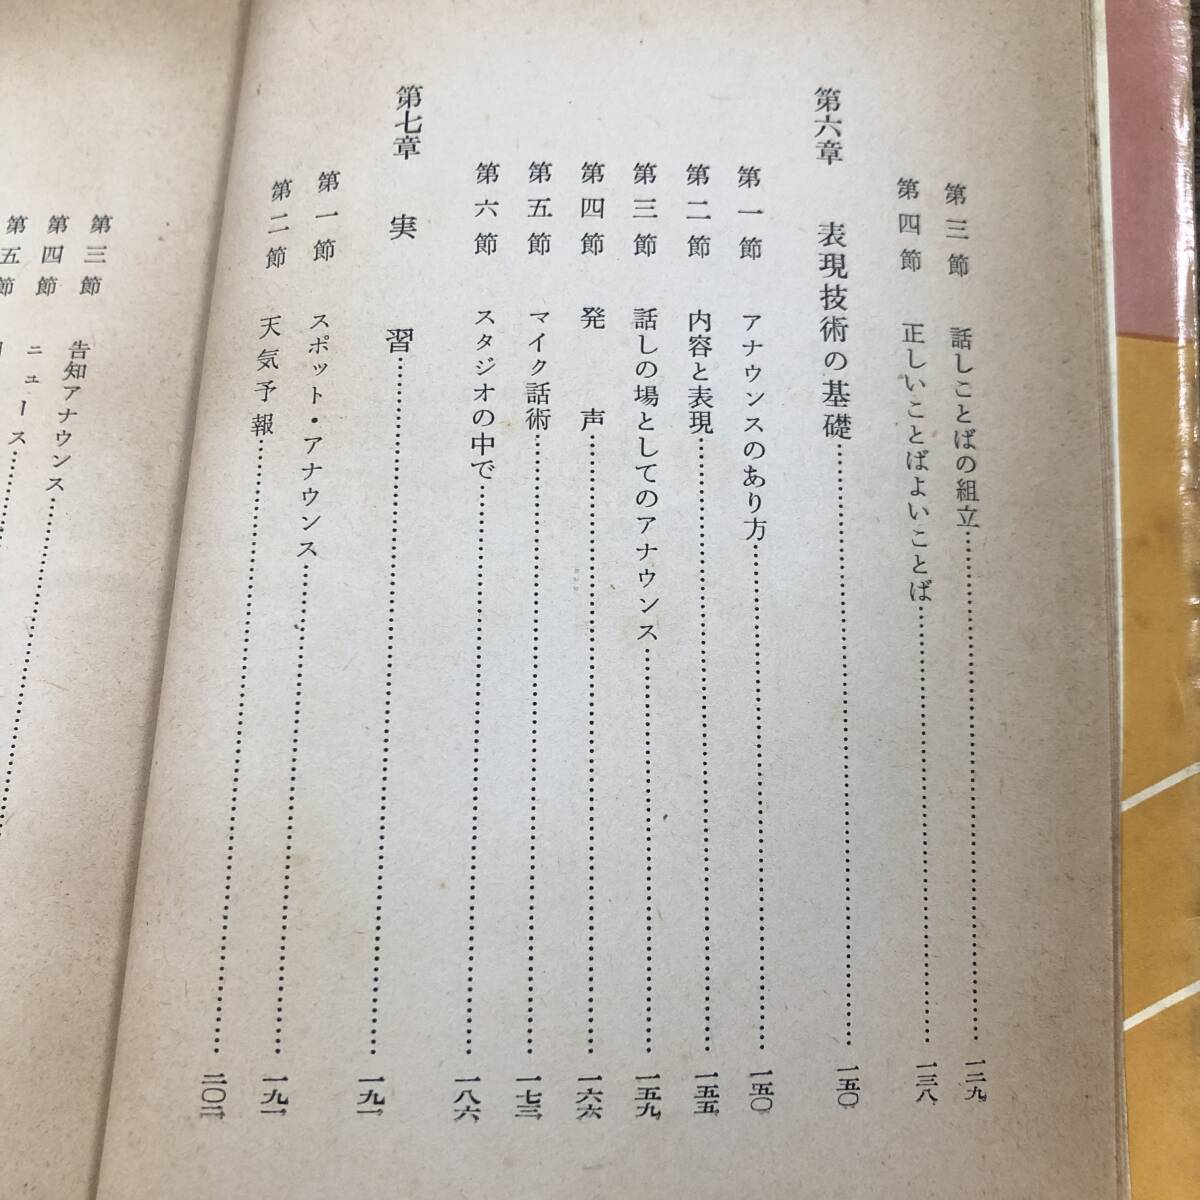 第三節　話しことばの組立……一二九
第四節　正しいことばよいことば……一三八
第六章　表現技術の基礎……一五〇
第一節　アナウンスのあり方……一五〇
第二節　内容と表現……一五五
第三節　話しの場としてのアナウンス……一五九
第四節　発声……一六六
第五節　マイク話術……一七三
第六節　スタジオの中で……一八六
第七章　実習……一九一
第一節　スポット・アナウンス……一九一
第二節　天気予報……二〇二
第三節　告知アナウンス……
第四節　ニュース……
第五節